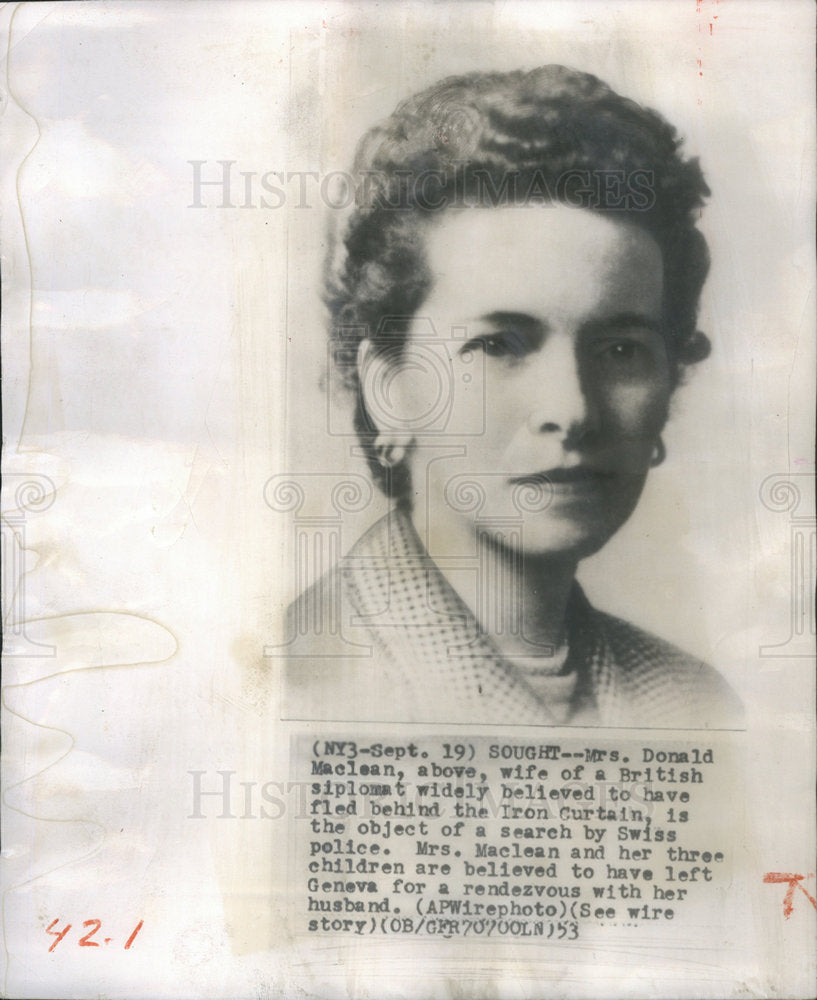 HISTORIC IMAGES
(NY3-Sept. 19) SOUGHT--Mrs. Donald
Maclean, above, wife of a British
siplomat widely believed to have
fled behind the Iron Curtain, is
the object of a search by Swiss
police. Mrs. Maclean and her three
children are believed to have left
Geneva for a rendezvous with her
husband. (APWirephoto)(See wire
story)(OB/GFR70700LN)53
HISTORIC IMAGES
42-1